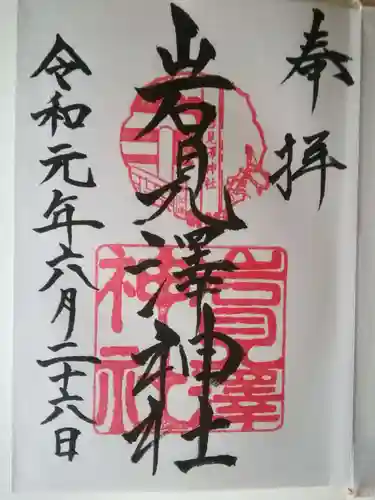 奉拝
岩見澤神社
令和元年六月二十六日
岩見澤神社